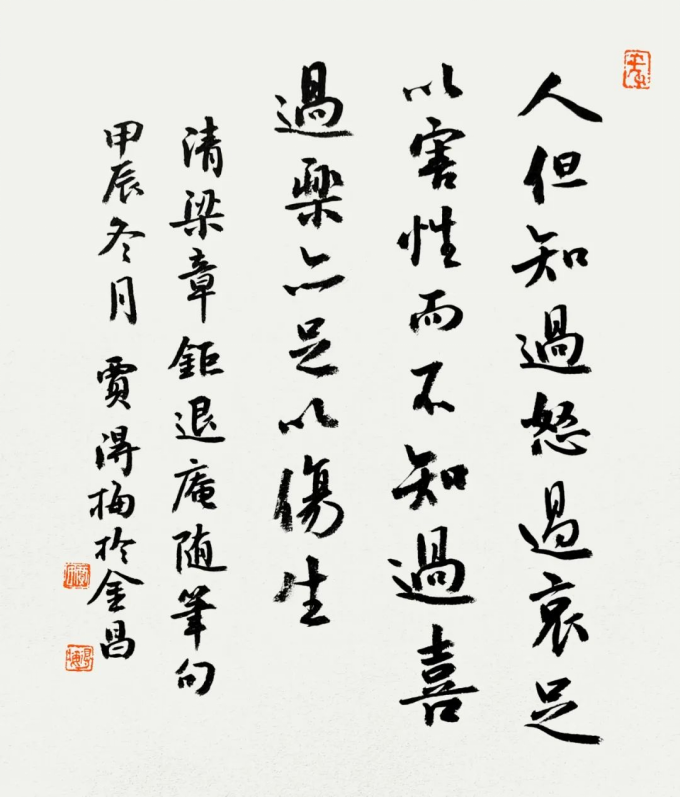 人但知過怒過哀足
以害性而不知過喜
過樂亦足以傷生
清梁章鉅退庵随筆句
甲辰冬月 賈得梅於金昌